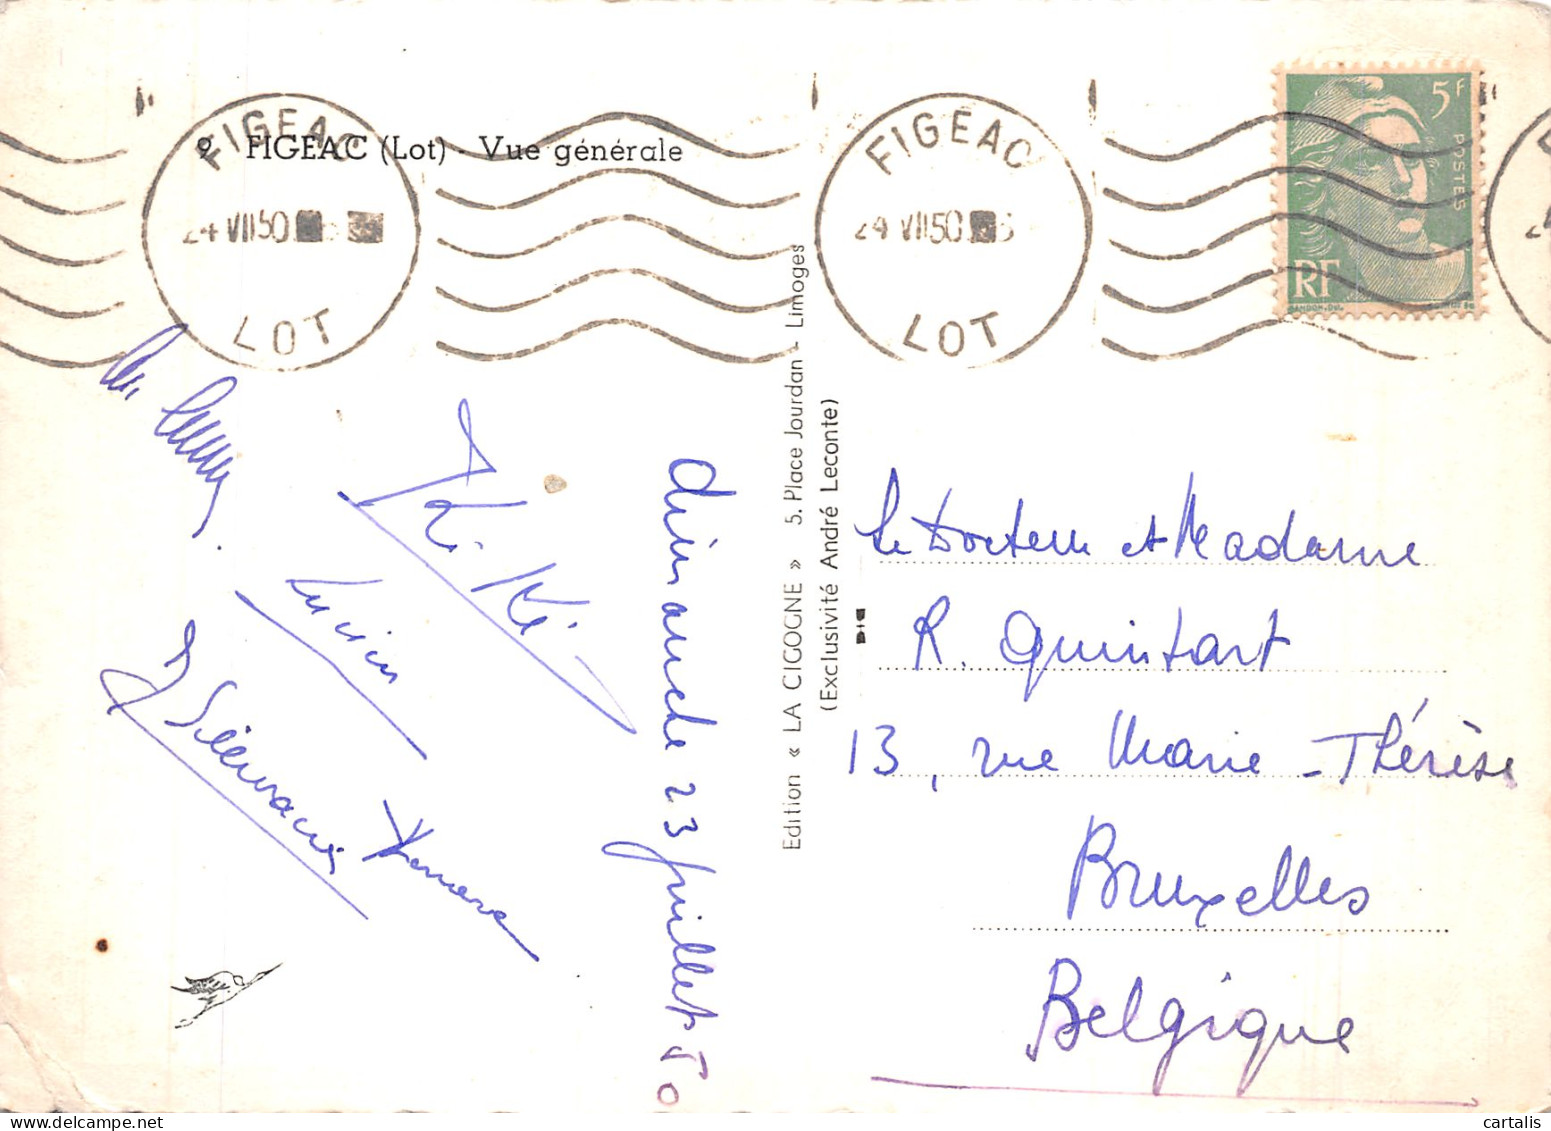 9. FIGEAC (Lot) - Vue générale
FIGEAC
24 VII 50
LOT
FIGEAC
24 VII 50
LOT
5F
POSTES
RF
Edition « LA CIGOGNE » 5, Place Jourdan - Limoges
(Exclusivité André Leconte)
dimanche 23 juillet 50
Ki Ki
Lucien
Le Docteur et Madame
R. Quintart
13, rue Marie-Thérèse
Bruxelles
Belgique
cartalis